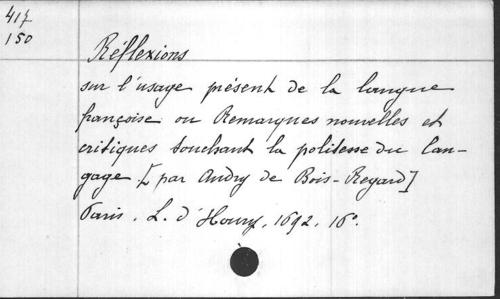 417
150
Réflexions
sur l'usage présent de la langue
françoise ou Remarques nouvelles et
critiques touchant la politesse du lan-
gage [par Andry de Bois-Regard]
Paris. L. d'Houry, 1692. 16°.